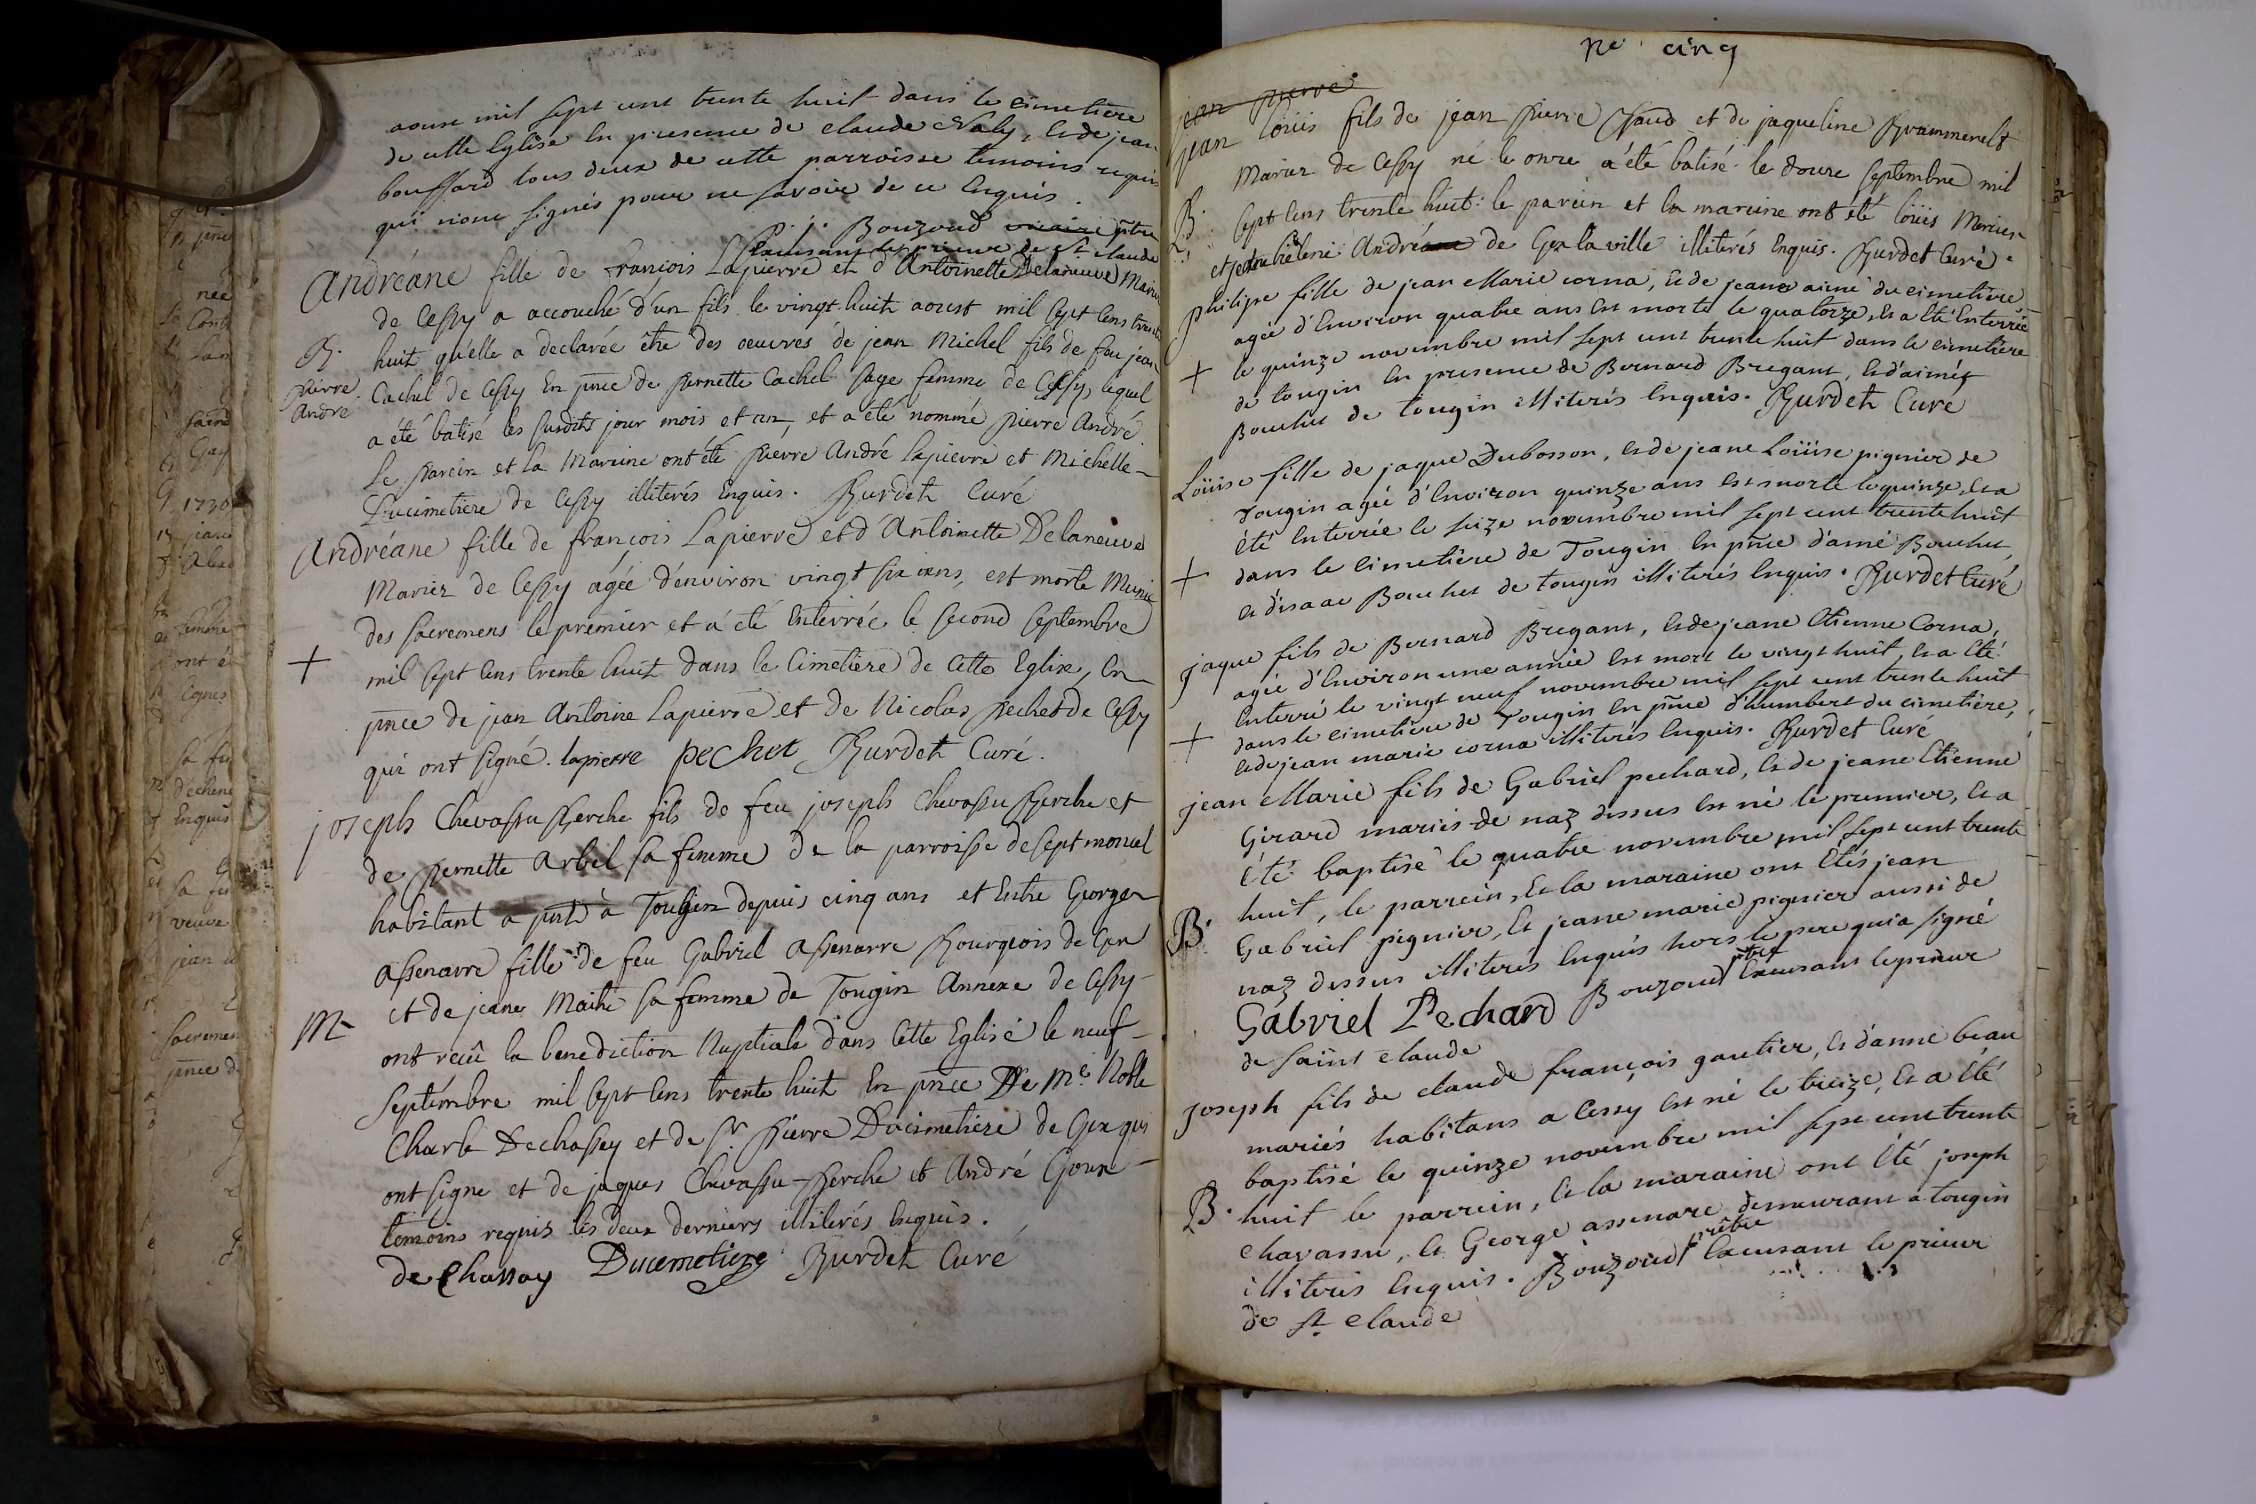 aoust mil sept cent trente huit dans le cimetiere
de cette Eglise En presence de claude Naly, & de jean
bouffard tous deux de cette parroisse temoins requis
qui n'ont signés pour ne savoir de ce Enquis.
P. J. Bouzoud vicaire pstre
Excusant le prieur de St. claude
Andréane fille de francois Lapierre et d'Antoinette Delaneuve Mariez
de Cessy a accouché d'un fils le vingt huit aoust mil sept Cens trente
B. huit qu'elle a declarée être des oeuvres de jean Michel fils de feu jean
pierre André
Cachel de Cessy En pnce de pernette Cachel sage femme de Cessy, lequel
a été batisé les susdits jour mois et an, et a été nommé pierre André
Le parein et la Mareine ont été pierre André lapierre et Michelle
Ducimetiere de Cessy illiterés Enquis. Burdet Curé
Andréane fille de françois Lapierre et d'Antoinette Delaneuve
Mariez de Cessy agée d'environ vingt six ans, est morte Munie
des sacremens le premier et a été Enterrée le second septembre
+ mil sept Cens trente huit dans le Cimetiere de Cette Eglise, En
pnce de jean Antoine Lapierre et de Nicolas pechet de Cessy
qui ont signé. lapierre pechet Burdet Curé.
joseph Chevassu perche fils de feu joseph Chevassu perche et
de pernette Arbel sa femme de la parroisse de sept moncel
habitant a Tougin depuis cinq ans et Entre George
assenarre fille de feu Gabriel assenarre Bourgeois de Gex
et de jeane Maihe sa femme de Tougin Annexe de Cessy
M ont reçû la benediction Nuptiale dans Cette Eglise le neuf
septembre mil sept Cens trente huit En pnce De Me. Noble
Charle Dechassey et de sr. pierre Ducimetiere de Gex qui
ont signe et de jaques Chevassu-perche et André Goux
temoins requis les deux derniers illiterés Enquis.
de Chassay Ducemetiere Burdet Curé
No. cinq
jean pierre
jean loüis fils de jean pierre Chaud et de jaqueline Brammerel
Mariez de Cessy né le onze a été batisé le douze septembre mil
B. sept Cens trente huit: le parein et la mareine ont été loüis Mercier
et helene André de Gex la ville illiterés Enquis. Burdet Curé.
philipe fille de jean Marie corna, & de jeane aimé du cimetière
agée d'Environ quatre ans Est morte le quatorze, & a été Enterrée
+ le quinze novembre mil sept cent trente huit dans le cimetiere
de tougin En presence de Bernard Bregant, & d'aimé
Bouchet de tougin illiterés Enquis. Burdet Curé
Loüise fille de jaque Dubosson, & de jeane Loüise pignier de
Tougin agée d'Environ quinze ans Est morte le quinze, & a
été Enterrée le seize novembre mil sept cent trente huit
+ dans le cimetiere de Tougin En pnce d'amé Bouchet,
& d'isaac Bouchet de tougin illiterés Enquis. Burdet Curé
jaque fils de Bernard Bregant, & de jeane Etienne Corna,
agée d'Environ une année Est mort le vingt huit, & a été
Enterré le vingt neuf novembre mil sept cent trente huit
+ dans le cimetiere de Tougin En pnce d'humbert du cimetière,
& de jean marie corna illiterés Enquis. Burdet Curé
jean Marie fils de Gabriel pechard, & de jeane Etienne
Girard mariés de naz dessus Est né le premier, & a
été baptisé le quatre novembre mil sept cent trente
huit, le parrein, & la maraine ont étés jean
B. Gabriel pignier, & jeane marie pignier aussi de
naz dessus illiterés Enquis hors le pere qui a signé
Gabriel Pechard Bouzoud pstre Excusant le prieur
de saint claude
joseph fils de claude françois gautier, & d'anne beau
mariés habitans a Cessy Est né le treize, & a été
baptisé le quinze novembre mil sept cent trente
B. huit le parrein, & la maraine ont été joseph
chavassu, & George assenare demeurant a tougin
illiterés Enquis. Bouzoud prêtre Excusant le prieur
de st. claude